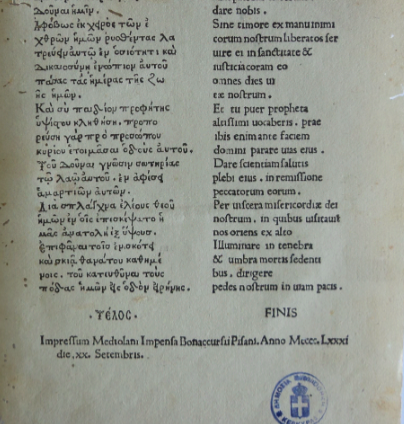 Δοῦναι ἡμῖν.
Ἀφόβως ἐκ χειρὸς τῶν ἐ
χθρῶν ἡμῶν ῥυσθέντας λα
τρεύειν αὐτῷ ἐν ὁσιότητι καὶ
Δικαιοσύνῃ ἐνώπιον αὐτοῦ
πάσας τὰς ἡμέρας τῆς ζω
ῆς ἡμῶν.
Καὶ σὺ παιδίον προφήτης
ὑψίστου κληθήσῃ. προπο
ρεύσῃ γὰρ πρὸ προσώπου
κυρίου ἑτοιμάσαι ὁδοὺς αὐτοῦ.
Τοῦ Δοῦναι γνῶσιν σωτηρίας
τῷ λαῷ αὐτοῦ. ἐν ἀφέσει
ἁμαρτιῶν αὐτῶν.
Διὰ σπλάγχνα ἐλέους θεοῦ
ἡμῶν ἐν οἷς ἐπισκέψατο ἡ
μᾶς ἀνατολὴ ἐξ ὕψους.
Ἐπιφᾶναι τοῖς ἐν σκότει
καὶ σκιᾷ θανάτου καθημέ
νοις. τοῦ κατευθῦναι τοὺς
πόδας ἡμῶν εἰς ὁδὸν εἰρήνης.
·Τέλος·
dare nobis.
Sine timore ex manu inimi
corum nostrum liberatos ser
uire ei in sanctitate &
iusticia coram eo
omnes dies ui
tæ nostrum.
Et tu puer propheta
altissimi uocaberis. præ
ibis enim ante faciem
domini parare uias eius.
Dare scientiam salutis
plebi eius. in remissione
peccatorum eorum.
Per uiscera misericordiæ dei
nostrum, in quibus uisitauit
nos oriens ex alto
Illuminare in tenebra
& umbra mortis sedenti
bus, dirigere
pedes nostrum in uiam pacis.
FINIS
Impressum Mediolani Impensa Bonaccursii Pisani. Anno Mcccc Lxxxi
die. xx. Setembris.